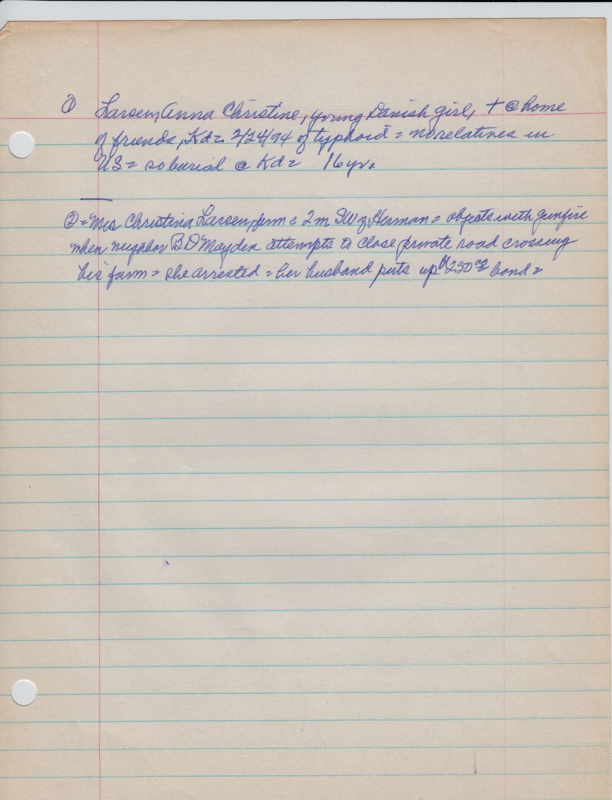 ① Larsen, Anna Christine, young Danish girl, † @ home
of friends, Kd = 2/24/94 of typhoid = no relatives in
US = so burial @ Kd = 16 yr.
② = Mrs Christina Larsen, farm c 2 m SW of Herman = objects with gunfire
when neighbor B D Mayden attempts to close private road crossing
his farm = she arrested = her husband puts up $250.00 bond =